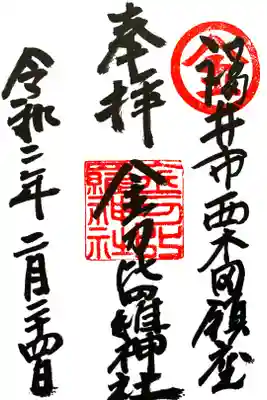 福井市西木田鎮座
金
奉拝
金刀比羅神社
金刀比
羅神社
令和二年 二月二十四日